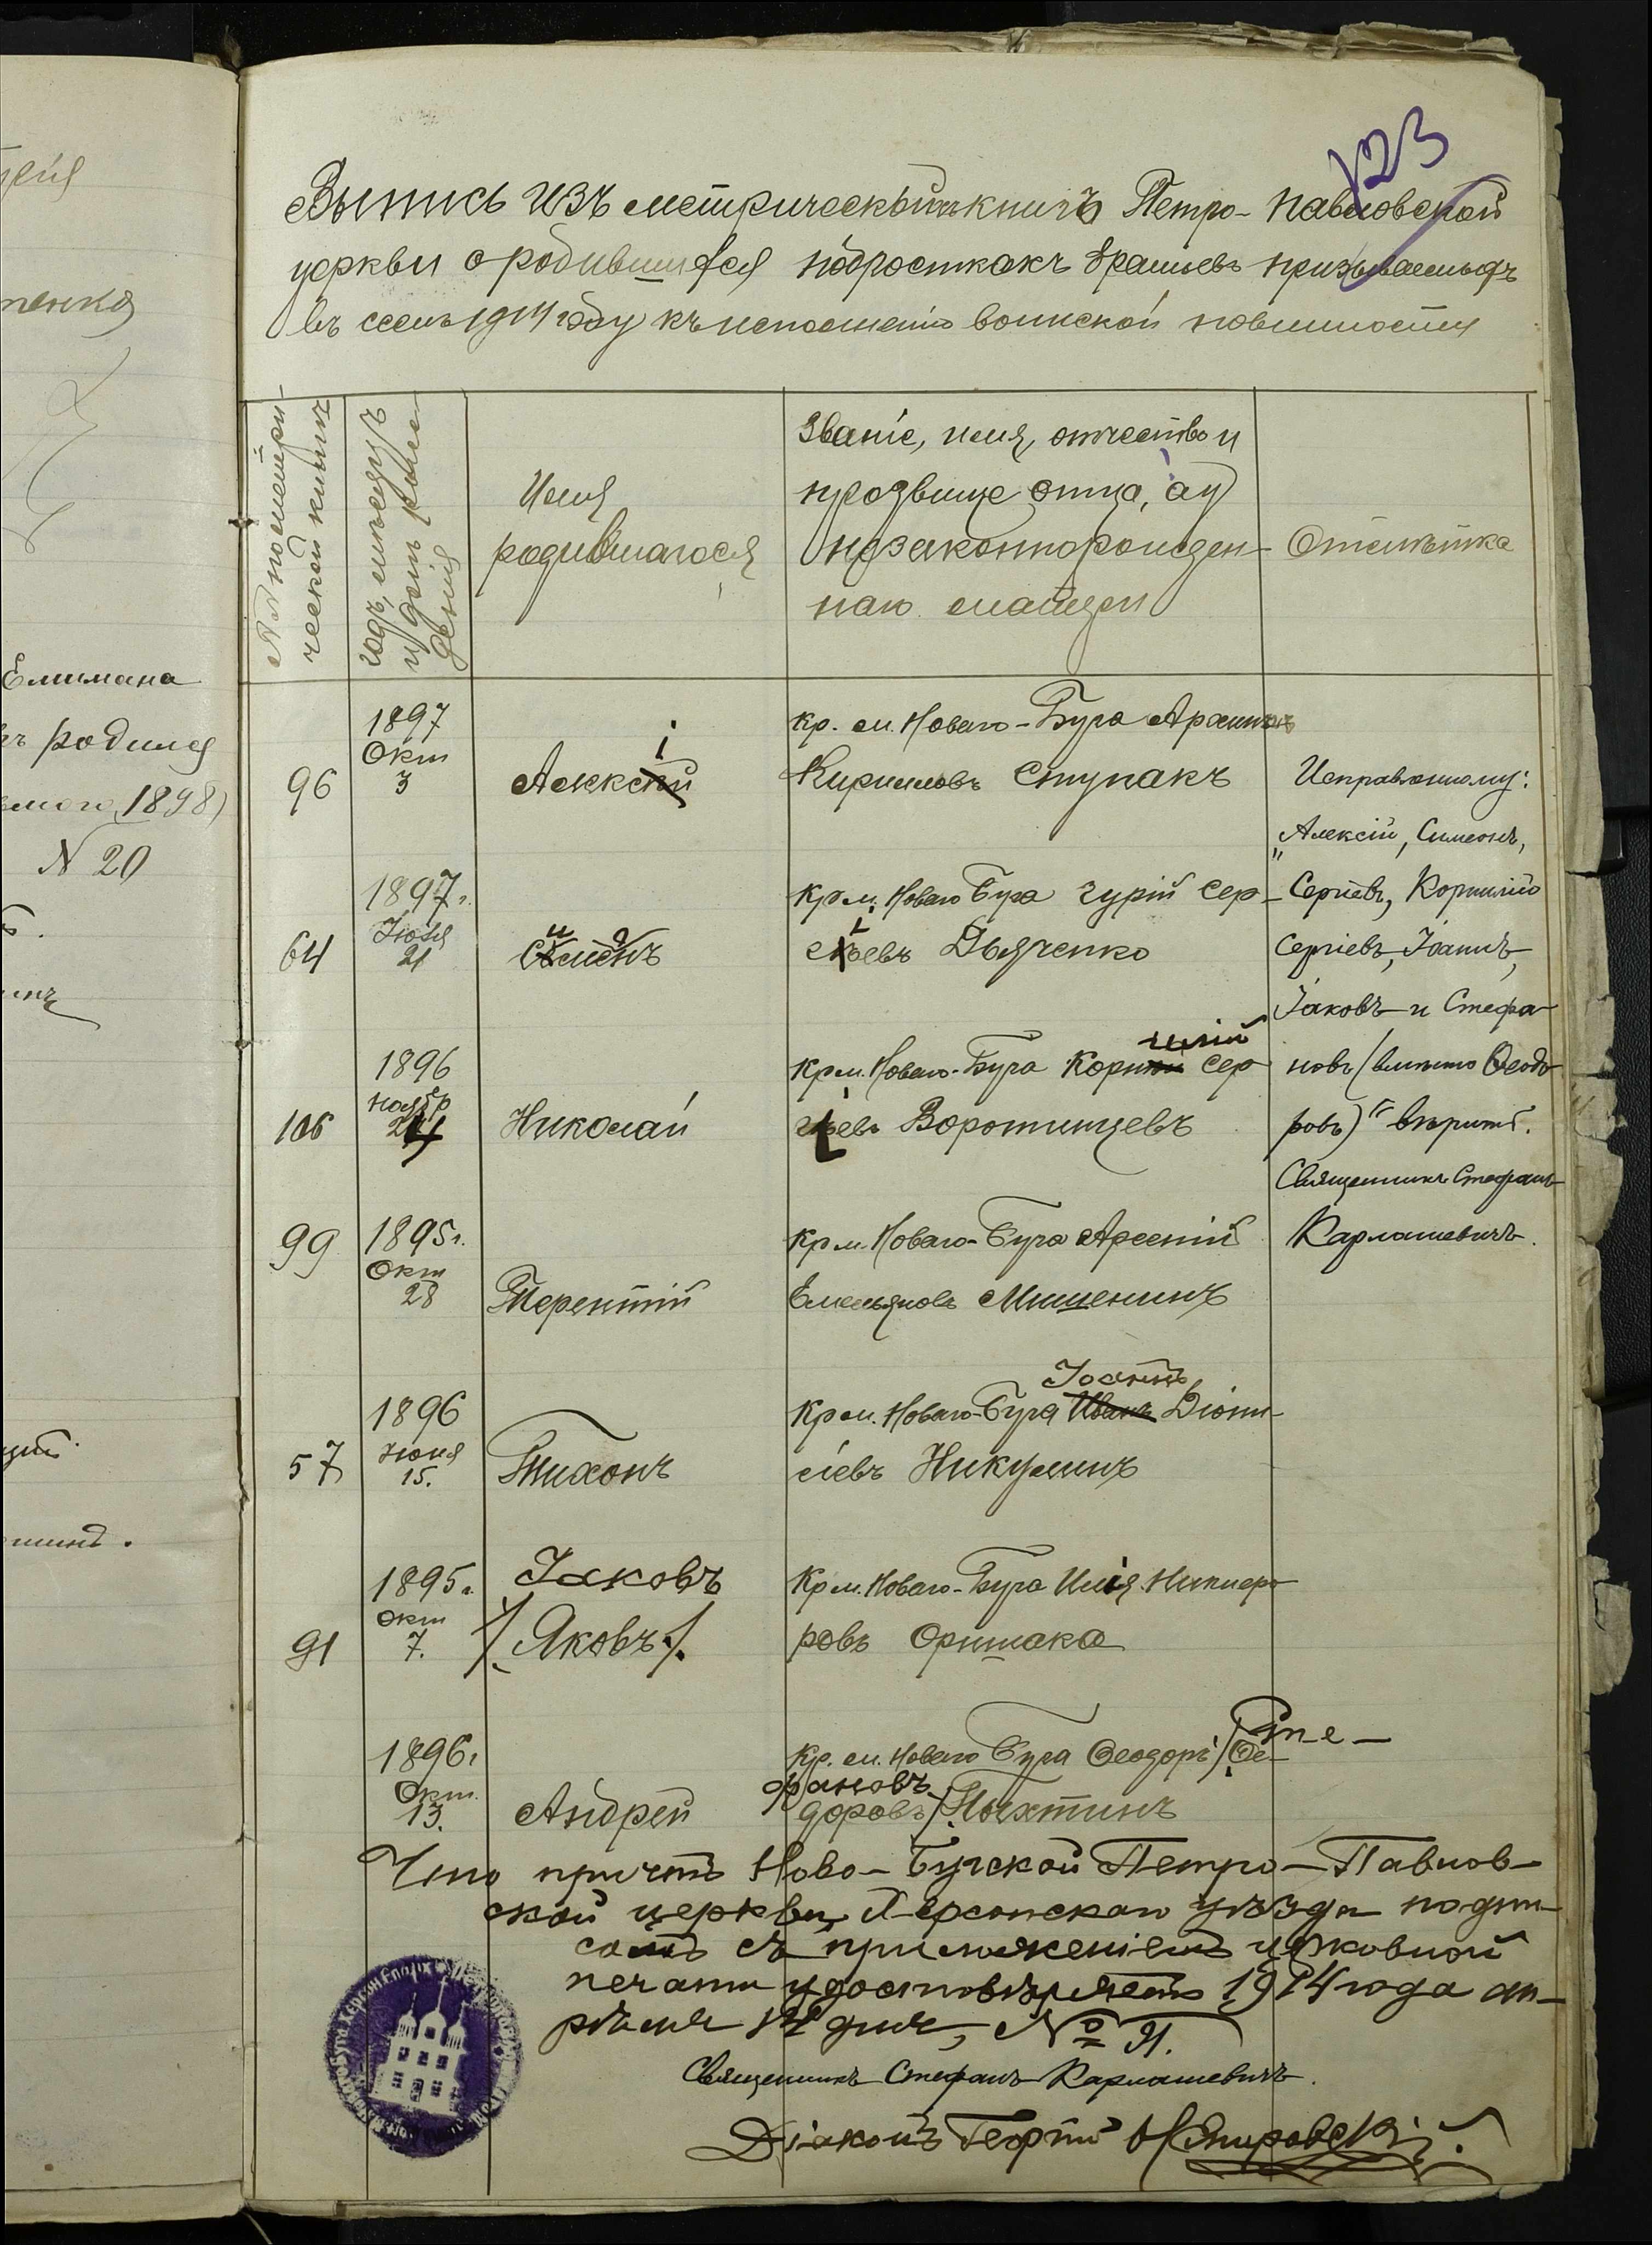 123
Выпись изъ метрическихъ книгъ Петро-Павловской
церкви о родившихся подросткахъ братьевъ призываемыхъ
въ семъ 1914 году къ исполненію воинской повинности
№№ по метри-
ческой книгѣ
годъ, мѣсяцъ
и день рож-
денія
Имя
родившагося
Званіе, имя, отчество и
прозвище отца, а у
незаконнорожден-
наго матери
Отмѣтка
96
1897
Окт
3
Алексій
кр. м. Новаго-Буга Архипъ
Кирилловъ Ступакъ
Исправленному:
„Алексій, Симеонъ,
Сергіевъ, Корнилій
Сергіевъ, Іоаннъ,
Іаковъ и Стефа-
новъ (вмѣсто Ѳеодо-
ровъ)“ вѣрить.
Священникъ Стефанъ
Карлашевичъ.
64
1897 г.
Іюня
21
Симеонъ
кр м. Новаго Буга Гурій Сер-
гіевъ Дьяченко
106
1896
ноябр
24
Николай
кр м. Новаго-Буга Корнилій Сер
гіевъ Воротинцевъ
99
1895 г.
Окт
28
Терентій
кр м. Новаго-Буга Арсеній
Емельяновъ Мишенинъ
57
1896
Іюня
15.
Тихонъ
Іоаннъ
кр м. Новаго-Буга Иванъ Діони-
сіевъ Никулинъ
91
1895 г.
окт
7.
Іаковъ
/.Яковъ./
Кр м. Новаго-Буга Илія Никифо-
ровъ Оришака
1896 г
Окт.
13.
Андрей
Сте-
Кр. м. Новаго Буга Ѳеодоръ /Ѳе-
фановъ
доровъ/ Пыхтинъ
Что причтъ Ново-Бугской Петро-Павлов-
ской церкви, Херсонскаго уѣзда подпи-
сомъ съ приложеніемъ церковной
печати удостовѣряетъ 1914 года ап-
рѣля 12 дня, № 91.
Священникъ Стефанъ Карлашевичъ.
Діаконъ Георгій
рея
тенко
Елимана
родился
1898)
N 20